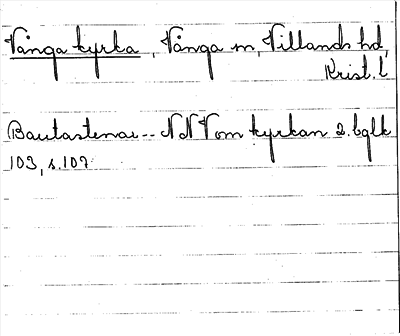 Vånga kyrka, Vånga sn, Villands hd,
Krist. l
Bautastenar -- NNV om kyrkan 2. bglk
103, s. 107